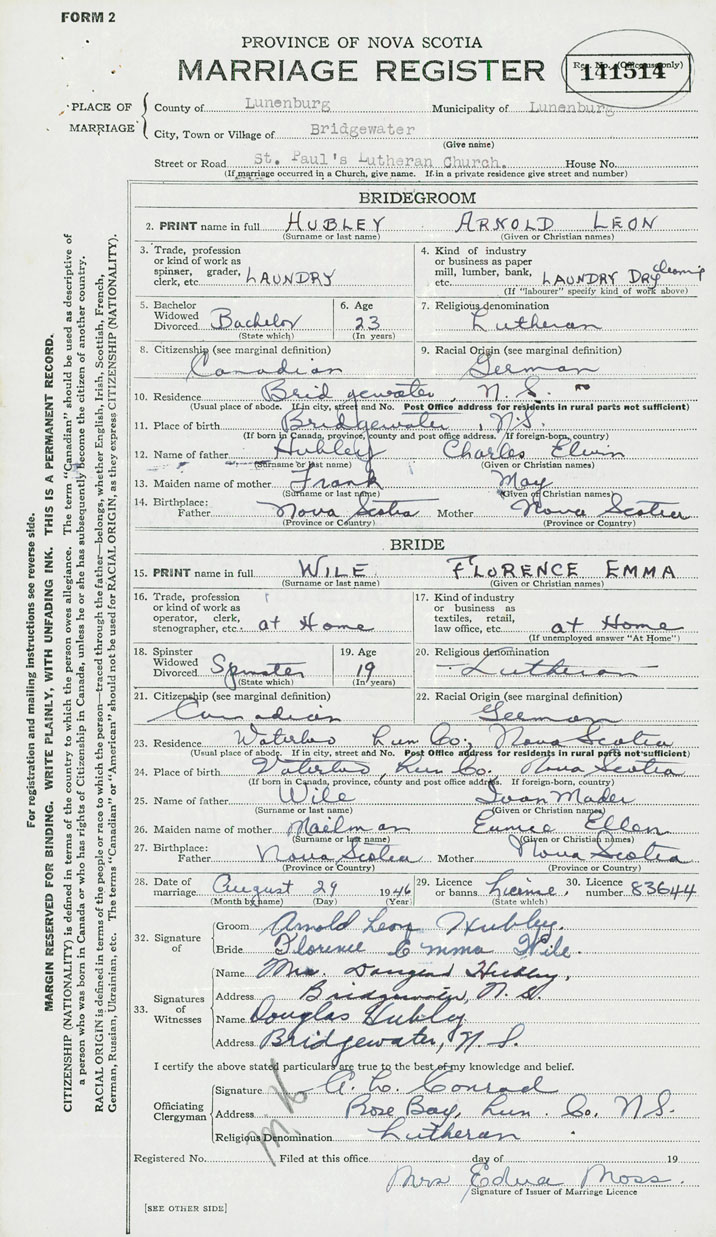 FORM 2
PROVINCE OF NOVA SCOTIA
MARRIAGE REGISTER
Reg. No. (Office use only)
141514
PLACE OF MARRIAGE
County of Lunenburg Municipality of Lunenburg
City, Town or Village of Bridgewater
(Give name)
Street or Road St. Paul's Lutheran Church. House No.
(If marriage occurred in a Church, give name. If in a private residence give street and number)
BRIDEGROOM
2. PRINT name in full HUBLEY ARNOLD LEON
(Surname or last name) (Given or Christian names)
3. Trade, profession or kind of work as spinner, grader, clerk, etc. LAUNDRY
4. Kind of industry or business as paper mill, lumber, bank, etc. LAUNDRY DRY cleaning
(If "labourer" specify kind of work above)
5. Bachelor Widowed Divorced Bachelor
(State which)
6. Age 23
(In years)
7. Religious denomination
Lutheran
8. Citizenship (see marginal definition)
Canadian
9. Racial Origin (see marginal definition)
German
10. Residence Bridgewater, N. S.
(Usual place of abode. If in city, street and No. Post Office address for residents in rural parts not sufficient)
11. Place of birth Bridgewater, N.S.
(If born in Canada, province, county and post office address. If foreign-born, country)
12. Name of father Hubley Charles Elvin
(Surname or last name) (Given or Christian names)
13. Maiden name of mother Frank May
(Surname or last name) (Given or Christian names)
14. Birthplace: Father Nova Scotia Mother Nova Scotia
(Province or Country) (Province or Country)
BRIDE
15. PRINT name in full WILE FLORENCE EMMA
(Surname or last name) (Given or Christian names)
16. Trade, profession or kind of work as operator, clerk, stenographer, etc. at Home
17. Kind of industry or business as textiles, retail, law office, etc. at Home
(If unemployed answer "At Home")
18. Spinster Widowed Divorced Spinster
(State which)
19. Age 19
(In years)
20. Religious denomination
Lutheran
21. Citizenship (see marginal definition)
Canadian
22. Racial Origin (see marginal definition)
German
23. Residence Waterloo Lun Co; Nova Scotia
(Usual place of abode. If in city, street and No. Post Office address for residents in rural parts not sufficient)
24. Place of birth Waterloo, Lun Co. Nova Scotia
(If born in Canada, province, county and post office address. If foreign-born, country)
25. Name of father Wile Ivan Mader
(Surname or last name) (Given or Christian names)
26. Maiden name of mother Mailman Eunice Ellen
(Surname or last name) (Given or Christian names)
27. Birthplace: Father Nova Scotia Mother Nova Scotia
(Province or Country) (Province or Country)
28. Date of marriage August 29 1946
(Month by name) (Day) (Year)
29. Licence or banns License,
(State which)
30. Licence number 83644
32. Signature of
Groom Arnold Leon Hubley.
Bride Florence Emma Wile.
33. Signatures of Witnesses
Name Mrs. Hubley,
Address Bridgewater, N. S.
Name Douglas Hubley
Address Bridgewater, N. S.
I certify the above stated particulars are true to the best of my knowledge and belief.
Officiating Clergyman
Signature Conrad
Address Rose Bay, Lun. Co, N.S.
Religious Denomination Lutheran
Registered No. Filed at this office day of 19
Mrs Edna Moss.
Signature of Issuer of Marriage Licence
[SEE OTHER SIDE]
For registration and mailing instructions see reverse side.
MARGIN RESERVED FOR BINDING. WRITE PLAINLY, WITH UNFADING INK. THIS IS A PERMANENT RECORD.
CITIZENSHIP (NATIONALITY) is defined in terms of the country to which the person owes allegiance. The term "Canadian" should be used as descriptive of
a person who was born in Canada or who has rights of Citizenship in Canada, unless he or she has subsequently become the citizen of another country.
RACIAL ORIGIN is defined in terms of the people or race to which the person—traced through the father—belongs, whether English, Irish, Scottish, French,
German, Russian, Ukrainian, etc. The terms "Canadian" or "American" should not be used for RACIAL ORIGIN, as they express CITIZENSHIP (NATIONALITY).